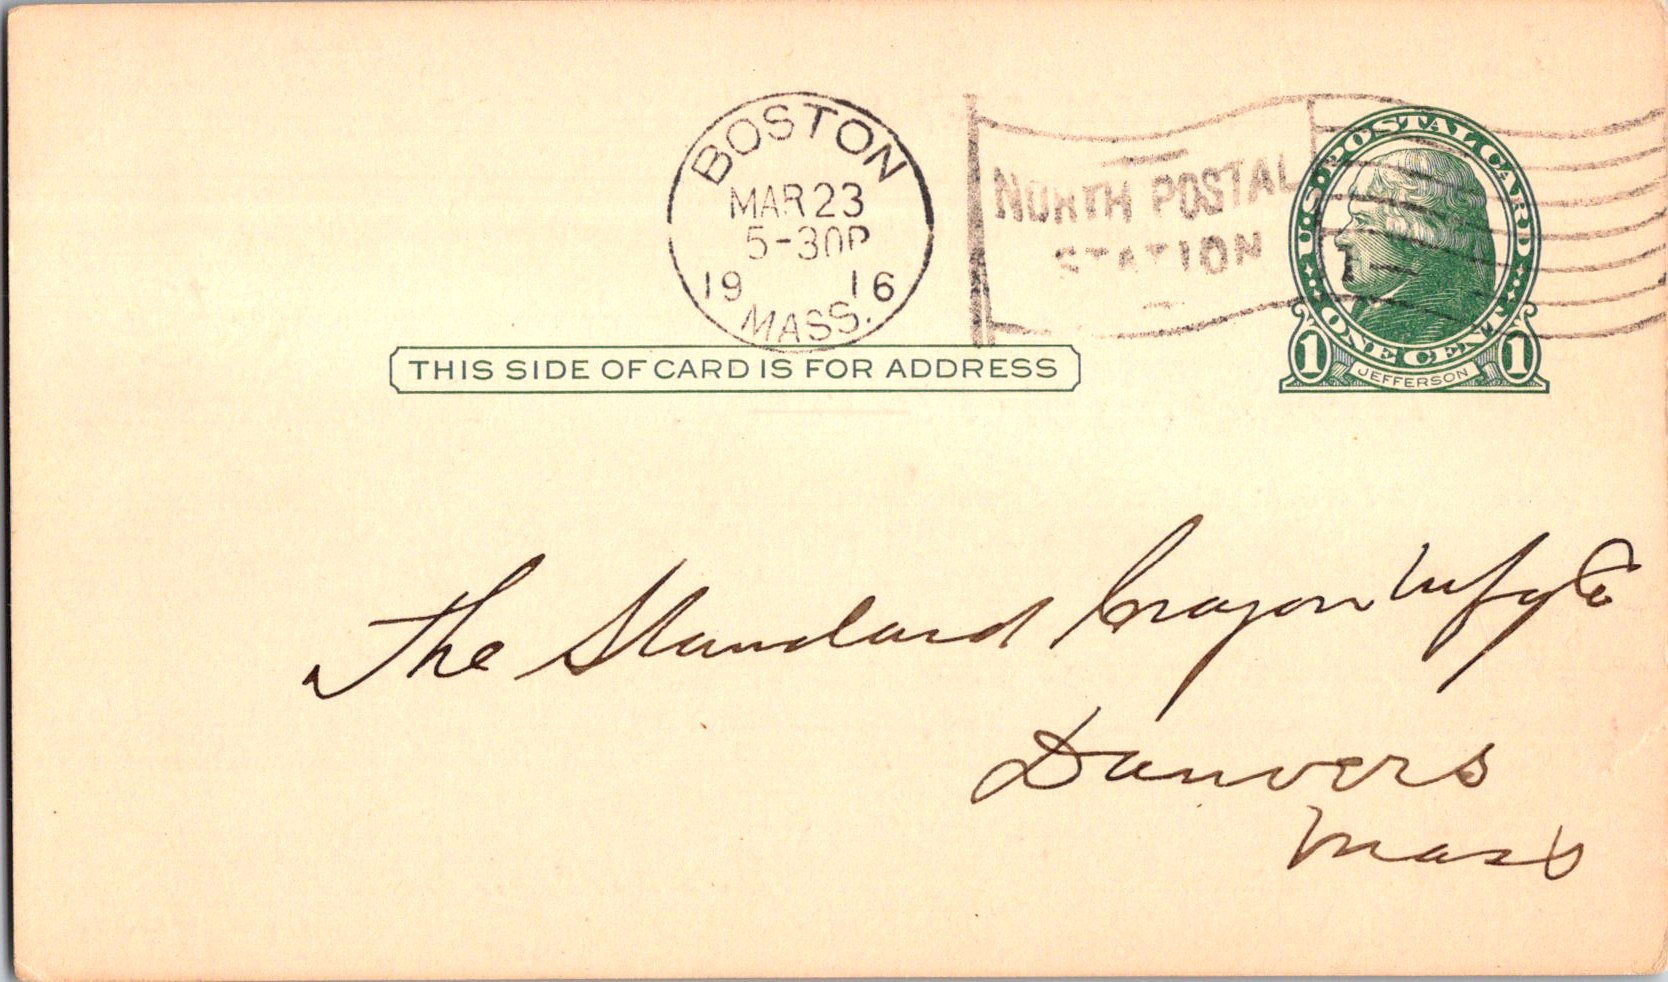 BOSTON
MAR 23
5-30P
19 16
MASS.
NORTH POSTAL
STATION
U·S·POSTAL CARD
ONE CENT
1 JEFFERSON 1
THIS SIDE OF CARD IS FOR ADDRESS
The Standard Crayon Mfg Co
Danvers
Mass